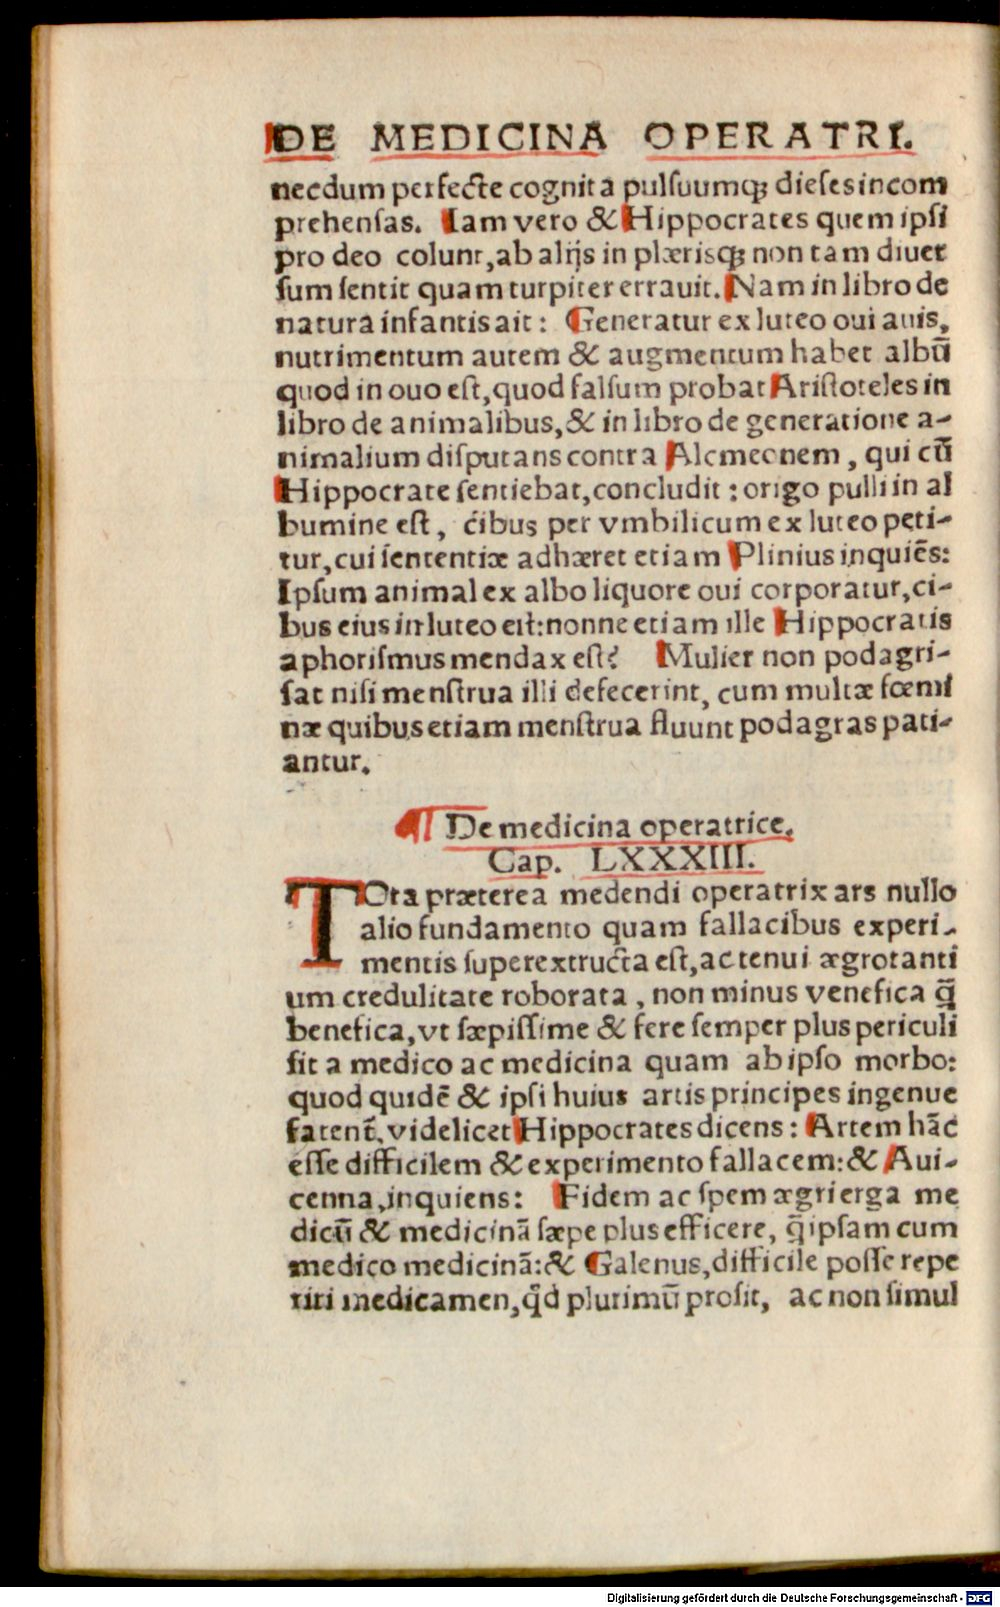 DE MEDICINA OPERATRI.
necdum perfecte cognita pulsuumqꝫ dieses incom
prehensas. Iam vero & Hippocrates quem ipsi
pro deo colunt, ab alijs in plærisqꝫ non tam diuer
sum sentit quam turpiter errauit. Nam in libro de
natura infantis ait: Generatur ex luteo oui auis,
nutrimentum autem & augmentum habet albū
quod in ouo est, quod falsum probat Aristoteles in
libro de animalibus, & in libro de generatione a-
nimalium disputans contra Alcmeonem, qui cū
Hippocrate sentiebat, concludit: origo pulli in al
bumine est, cibus per vmbilicum ex luteo peti-
tur, cui sententiæ adhæret etiam Plinius inquiēs:
Ipsum animal ex albo liquore oui corporatur, ci-
bus eius in luteo est: nonne etiam ille Hippocratis
aphorismus mendax est? Mulier non podagri-
sat nisi menstrua illi defecerint, cum multæ fœmi
næ quibus etiam menstrua fluunt podagras pati-
antur.
¶ De medicina operatrice.
Cap. LXXXIII.
TOta præterea medendi operatrix ars nullo
alio fundamento quam fallacibus experi-
mentis superextructa est, ac tenui ægrotanti
um credulitate roborata, non minus venefica q̃
benefica, vt sæpissime & fere semper plus periculi
sit a medico ac medicina quam ab ipso morbo:
quod quidē & ipsi huius artis principes ingenue
fatent̃, videlicet Hippocrates dicens: Artem hāc
esse difficilem & experimento fallacem: & Aui-
cenna, inquiens: Fidem ac spem ægri erga me
dicū & medicinā sæpe plus efficere, q̃ ipsam cum
medico medicinā: & Galenus, difficile posse repe
riri medicamen, qd̃ plurimū prosit, ac non simul
Digitalisierung gefördert durch die Deutsche Forschungsgemeinschaft - DFG